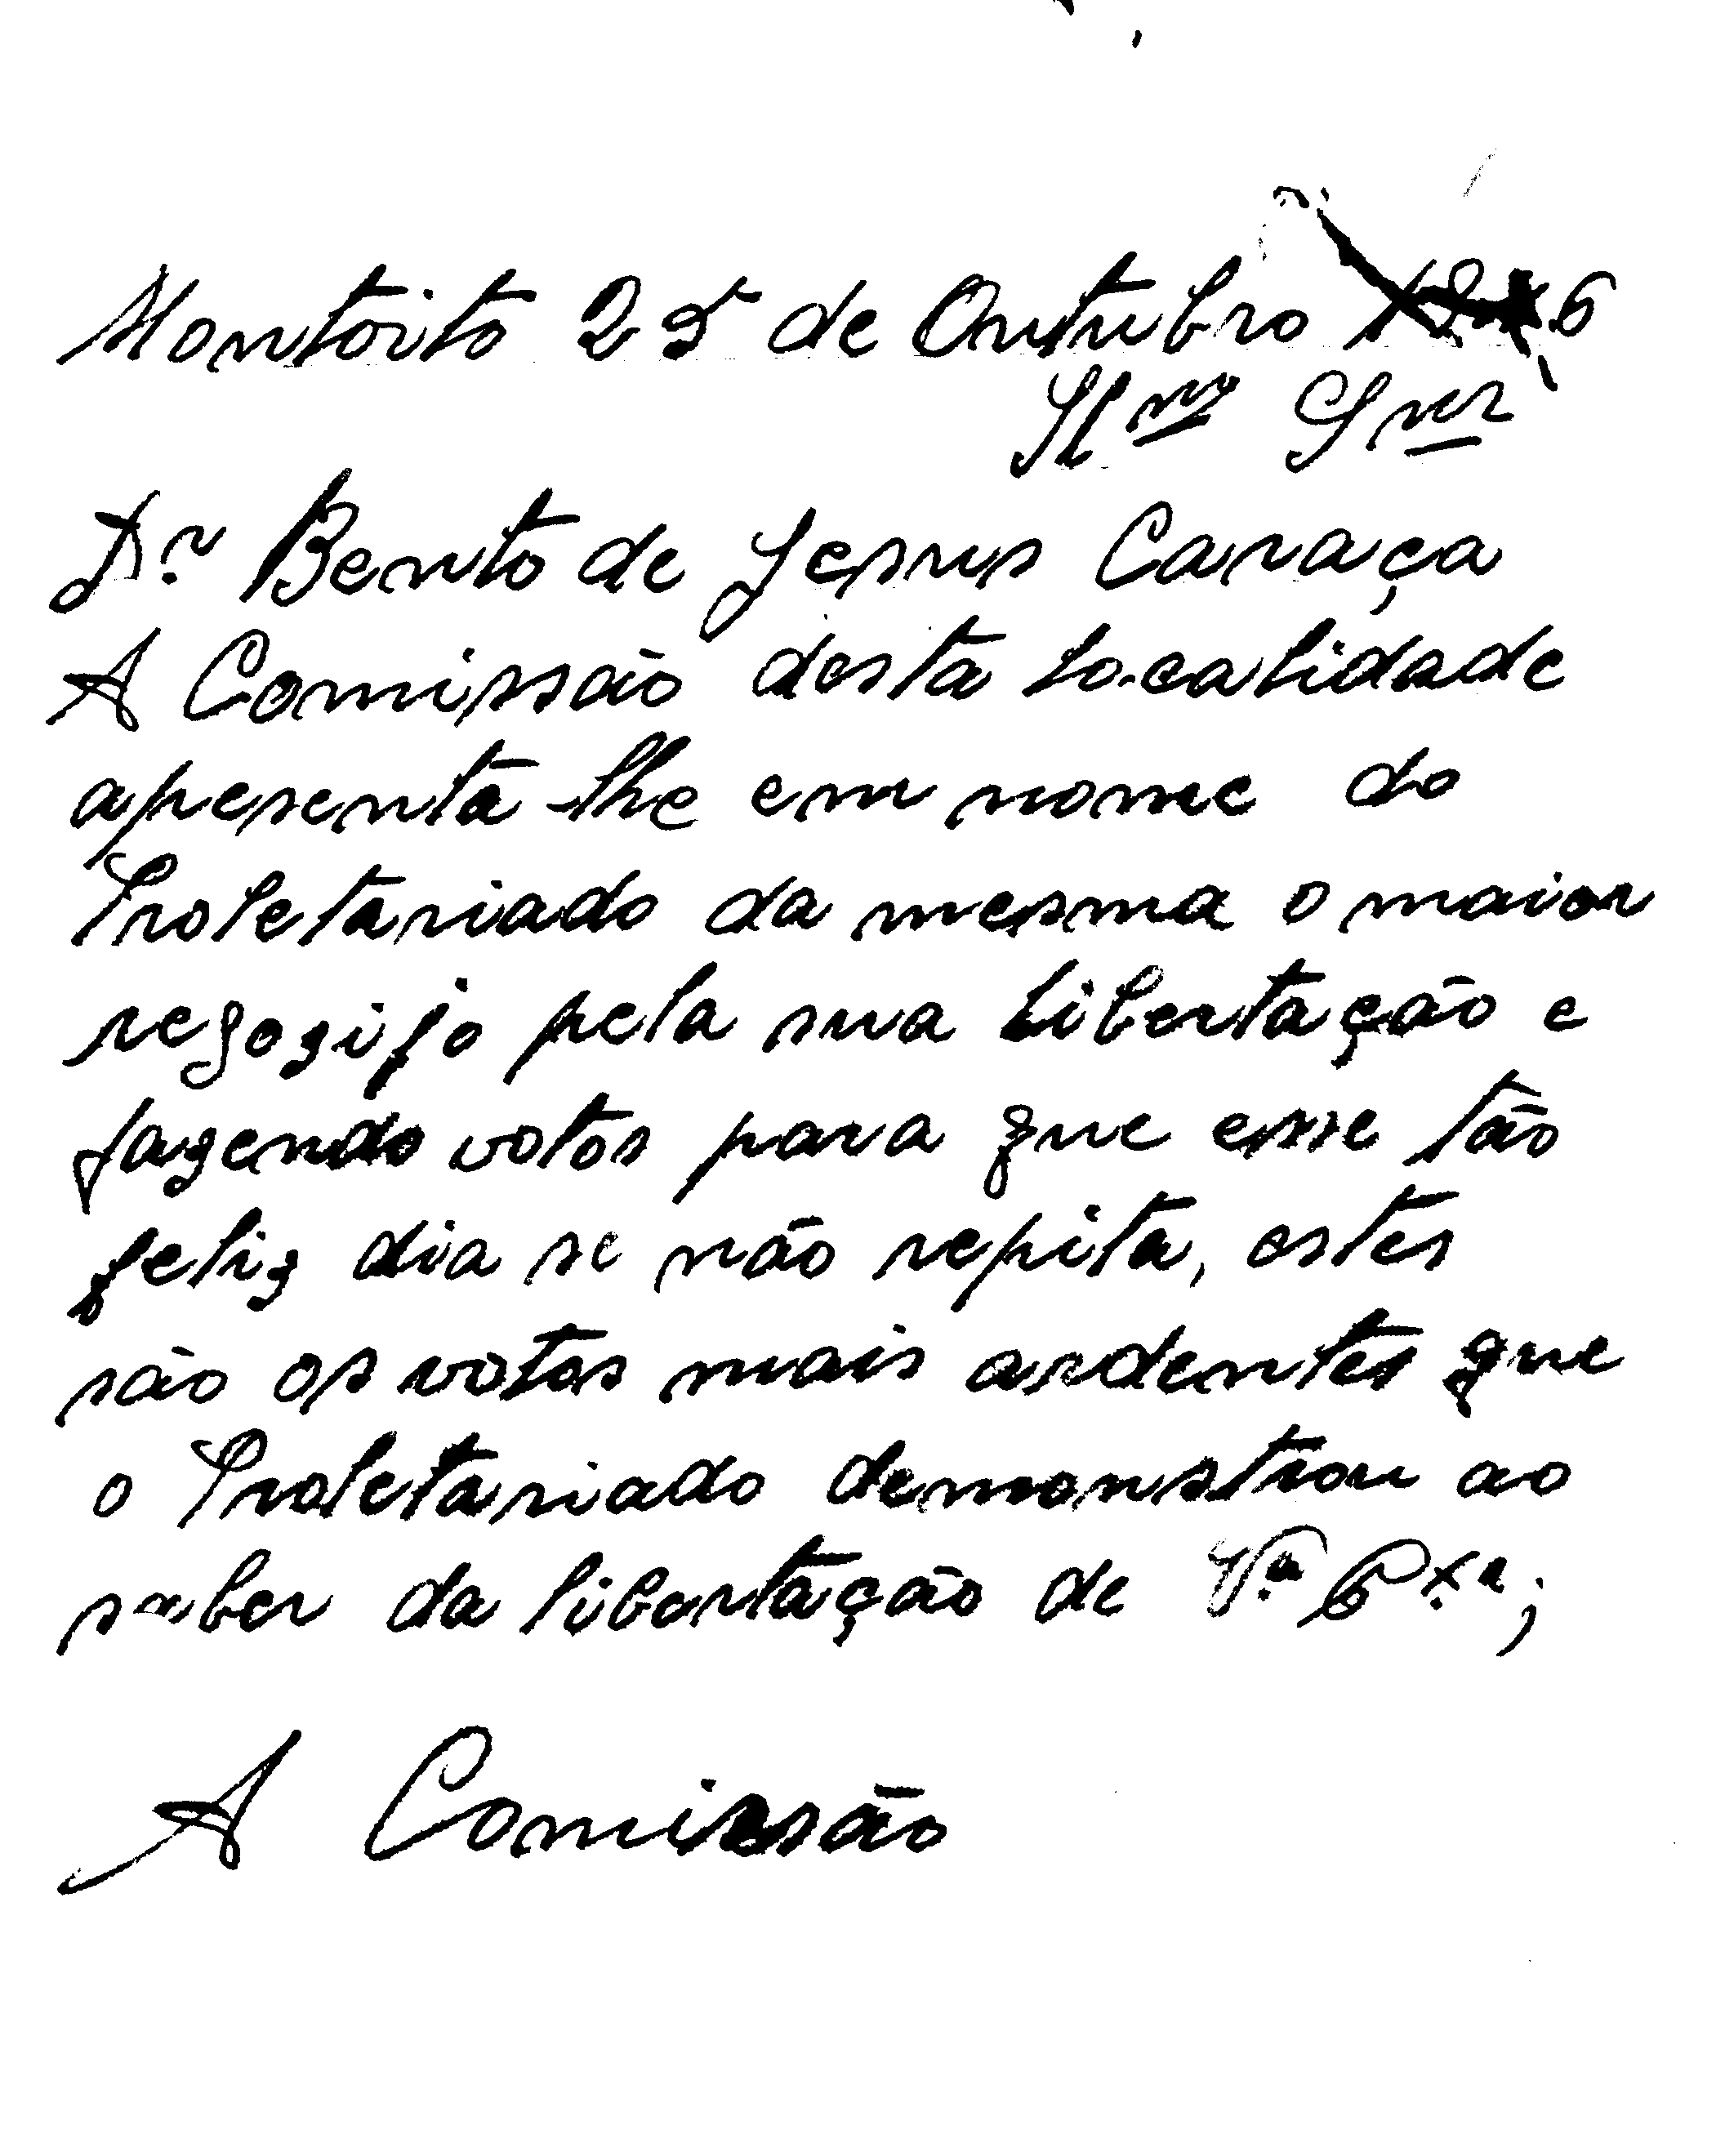 Montoito 25 de Outubro 1946
Ilmo Snr
Dr. Bento de Jesus Caraça
A Comissão desta localidade
apesenta-lhe em nome do
Proletariado da mesma o maior
regozijo pela sua libertação e
fazendo votos para que esse tão
feliz dia se não repita, estes
são os votos mais ardentes que
o Proletariado demonstrou ao
saber da libertação de V.a Ex.a;
A Comissão